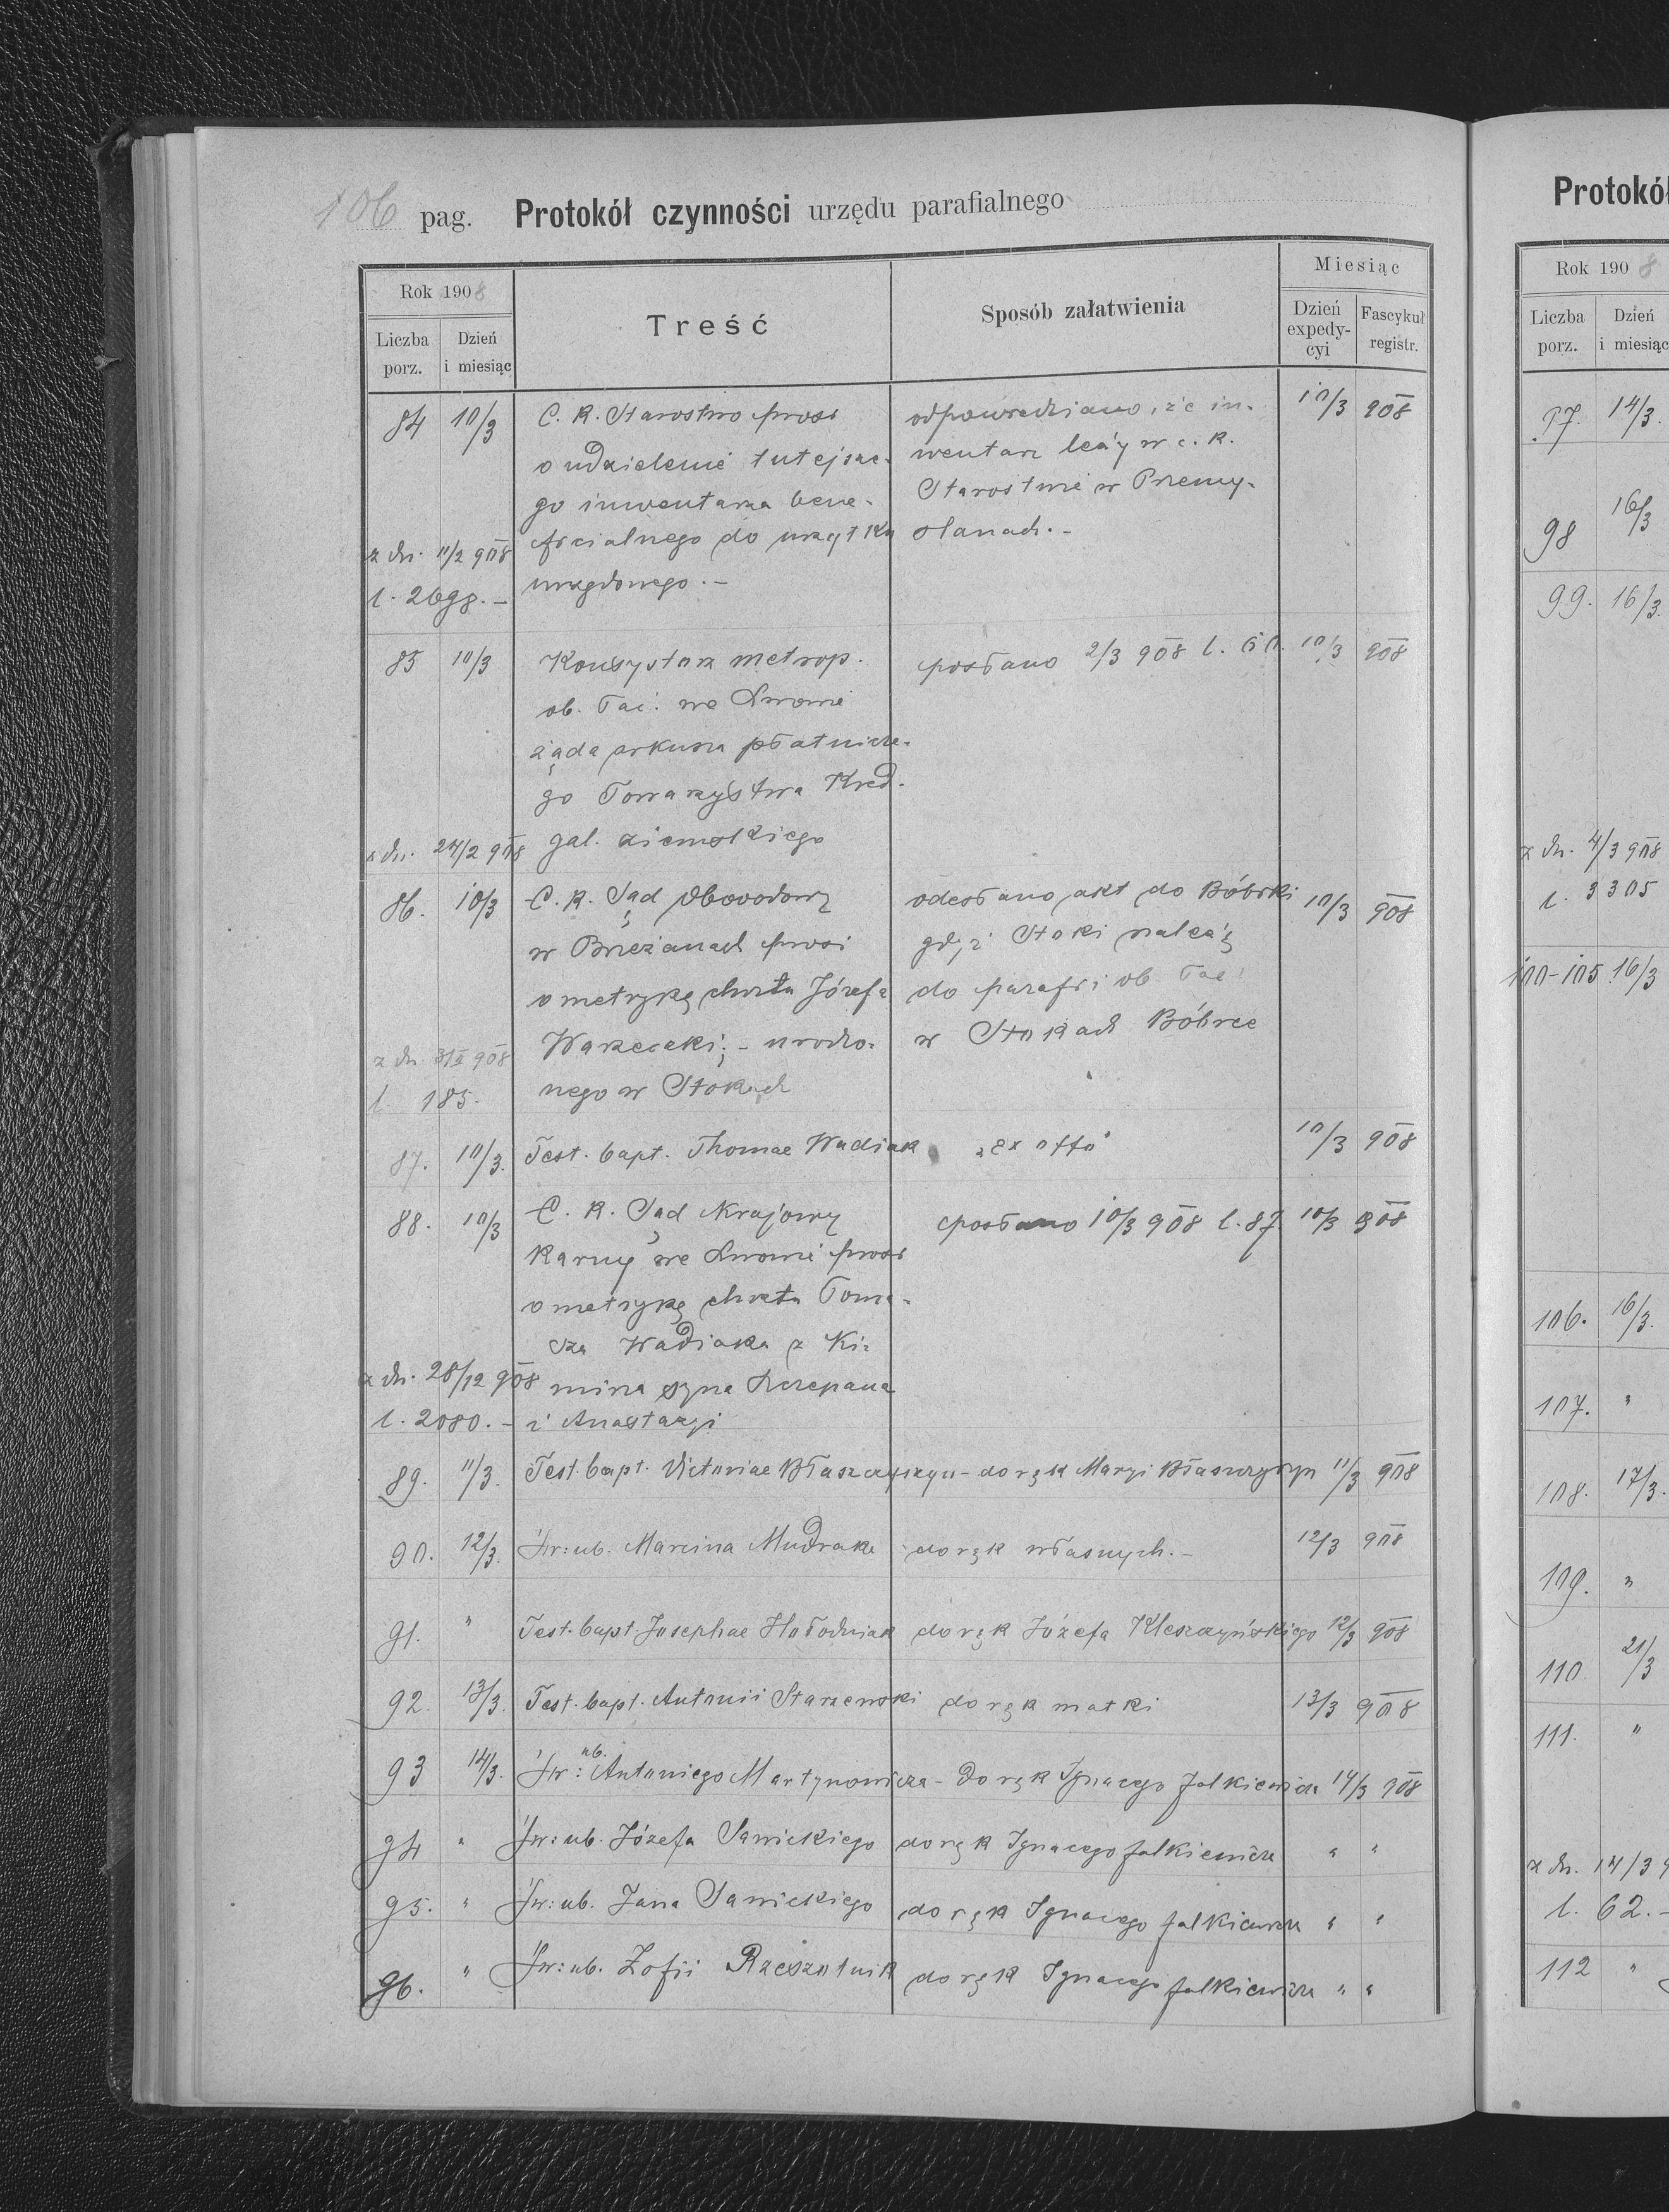 106 pag. Protokół czynności urzędu parafialnego
Rok 1908
Liczba porz.
Dzień i miesiąc
Treść
Sposób załatwienia
Miesiąc
Dzień expedy-cyi
Fascykuł registr.
84 10/3 C. K. Starostwo prosi odpowiedziano, że in- 10/3 908
o udzielenie tutejsze- wentarz leży w c. k.
go inwentarza bene- Starostwie w Przemy-
z dn. 11/2 908 ficialnego do użytku ślanach.-
l. 2698.- urzędowego.-
85 10/3 Konsystorz metrop. posłano 2/3 908 l. 60. 10/3 908
ob. łać. we Lwowie
żąda arkusza płatnicze-
go Towarzystwa Kred.
z dn. 24/2 908 gal. ziemskiego
86. 10/3 C. K. Sąd Obwodowy odesłano akt do Bóbrki 10/3 908
w Brzeżanach prosi gdyż Stoki należą
o metrykę chrztu Józefa do parafii ob łać
z dn. 908 - urodzo- w Stokach Bóbrce
l. 185. nego w Stokach
87. 10/3. Test. bapt. Thomae Wadiak „ex offo" 10/3 908
88. 10/3 C. K. Sąd Krajowy posłano 10/3 908 l. 87. 10/3 908
Karny we Lwowie prosi
o metrykę chrztu Toma-
sza Wadiaka z Ki-
z dn. 28/12 908 mirza syna Szczepana
l. 2080.- i Anastazyi
89. 11/3. Test. bapt. Victoriae Błaszczyszyn - do rąk Maryi Błaszczyszyn 11/3 908
90. 12/3. Św: ub. Marcina Mudraka do rąk własnych.- 12/3 908
91. " Test. bapt. Josephae Hołodniak do rąk Józefa Kleszczyńskiego 12/3 908
92. 13/3. Test. bapt. Antonii Starzewski do rąk matki 13/3 908
93 14/3. Św: ub. Antoniego Martynowicza - do rąk Ignacego Falkiewicza 14/3 908
94 " Św: ub. Józefa Sawickiego do rąk Ignacego Falkiewicza " "
95. " Św: ub. Jana Sawickiego do rąk Ignacego Falkiewicza " "
96. " Św: ub. Zofii Rzeszotnik do rąk Ignacego Falkiewicza " "
Protokół
Rok 1908
Liczba porz.
Dzień i miesiąc
97. 14/3.
98 16/3
99. 16/3.
z dn. 4/3 908
l. 3305
100-105 16/3
106. 16/3.
107. "
108. 17/3.
109. "
110 21/3
111. "
z dn. 14/3 9
l. 62.-
112 "